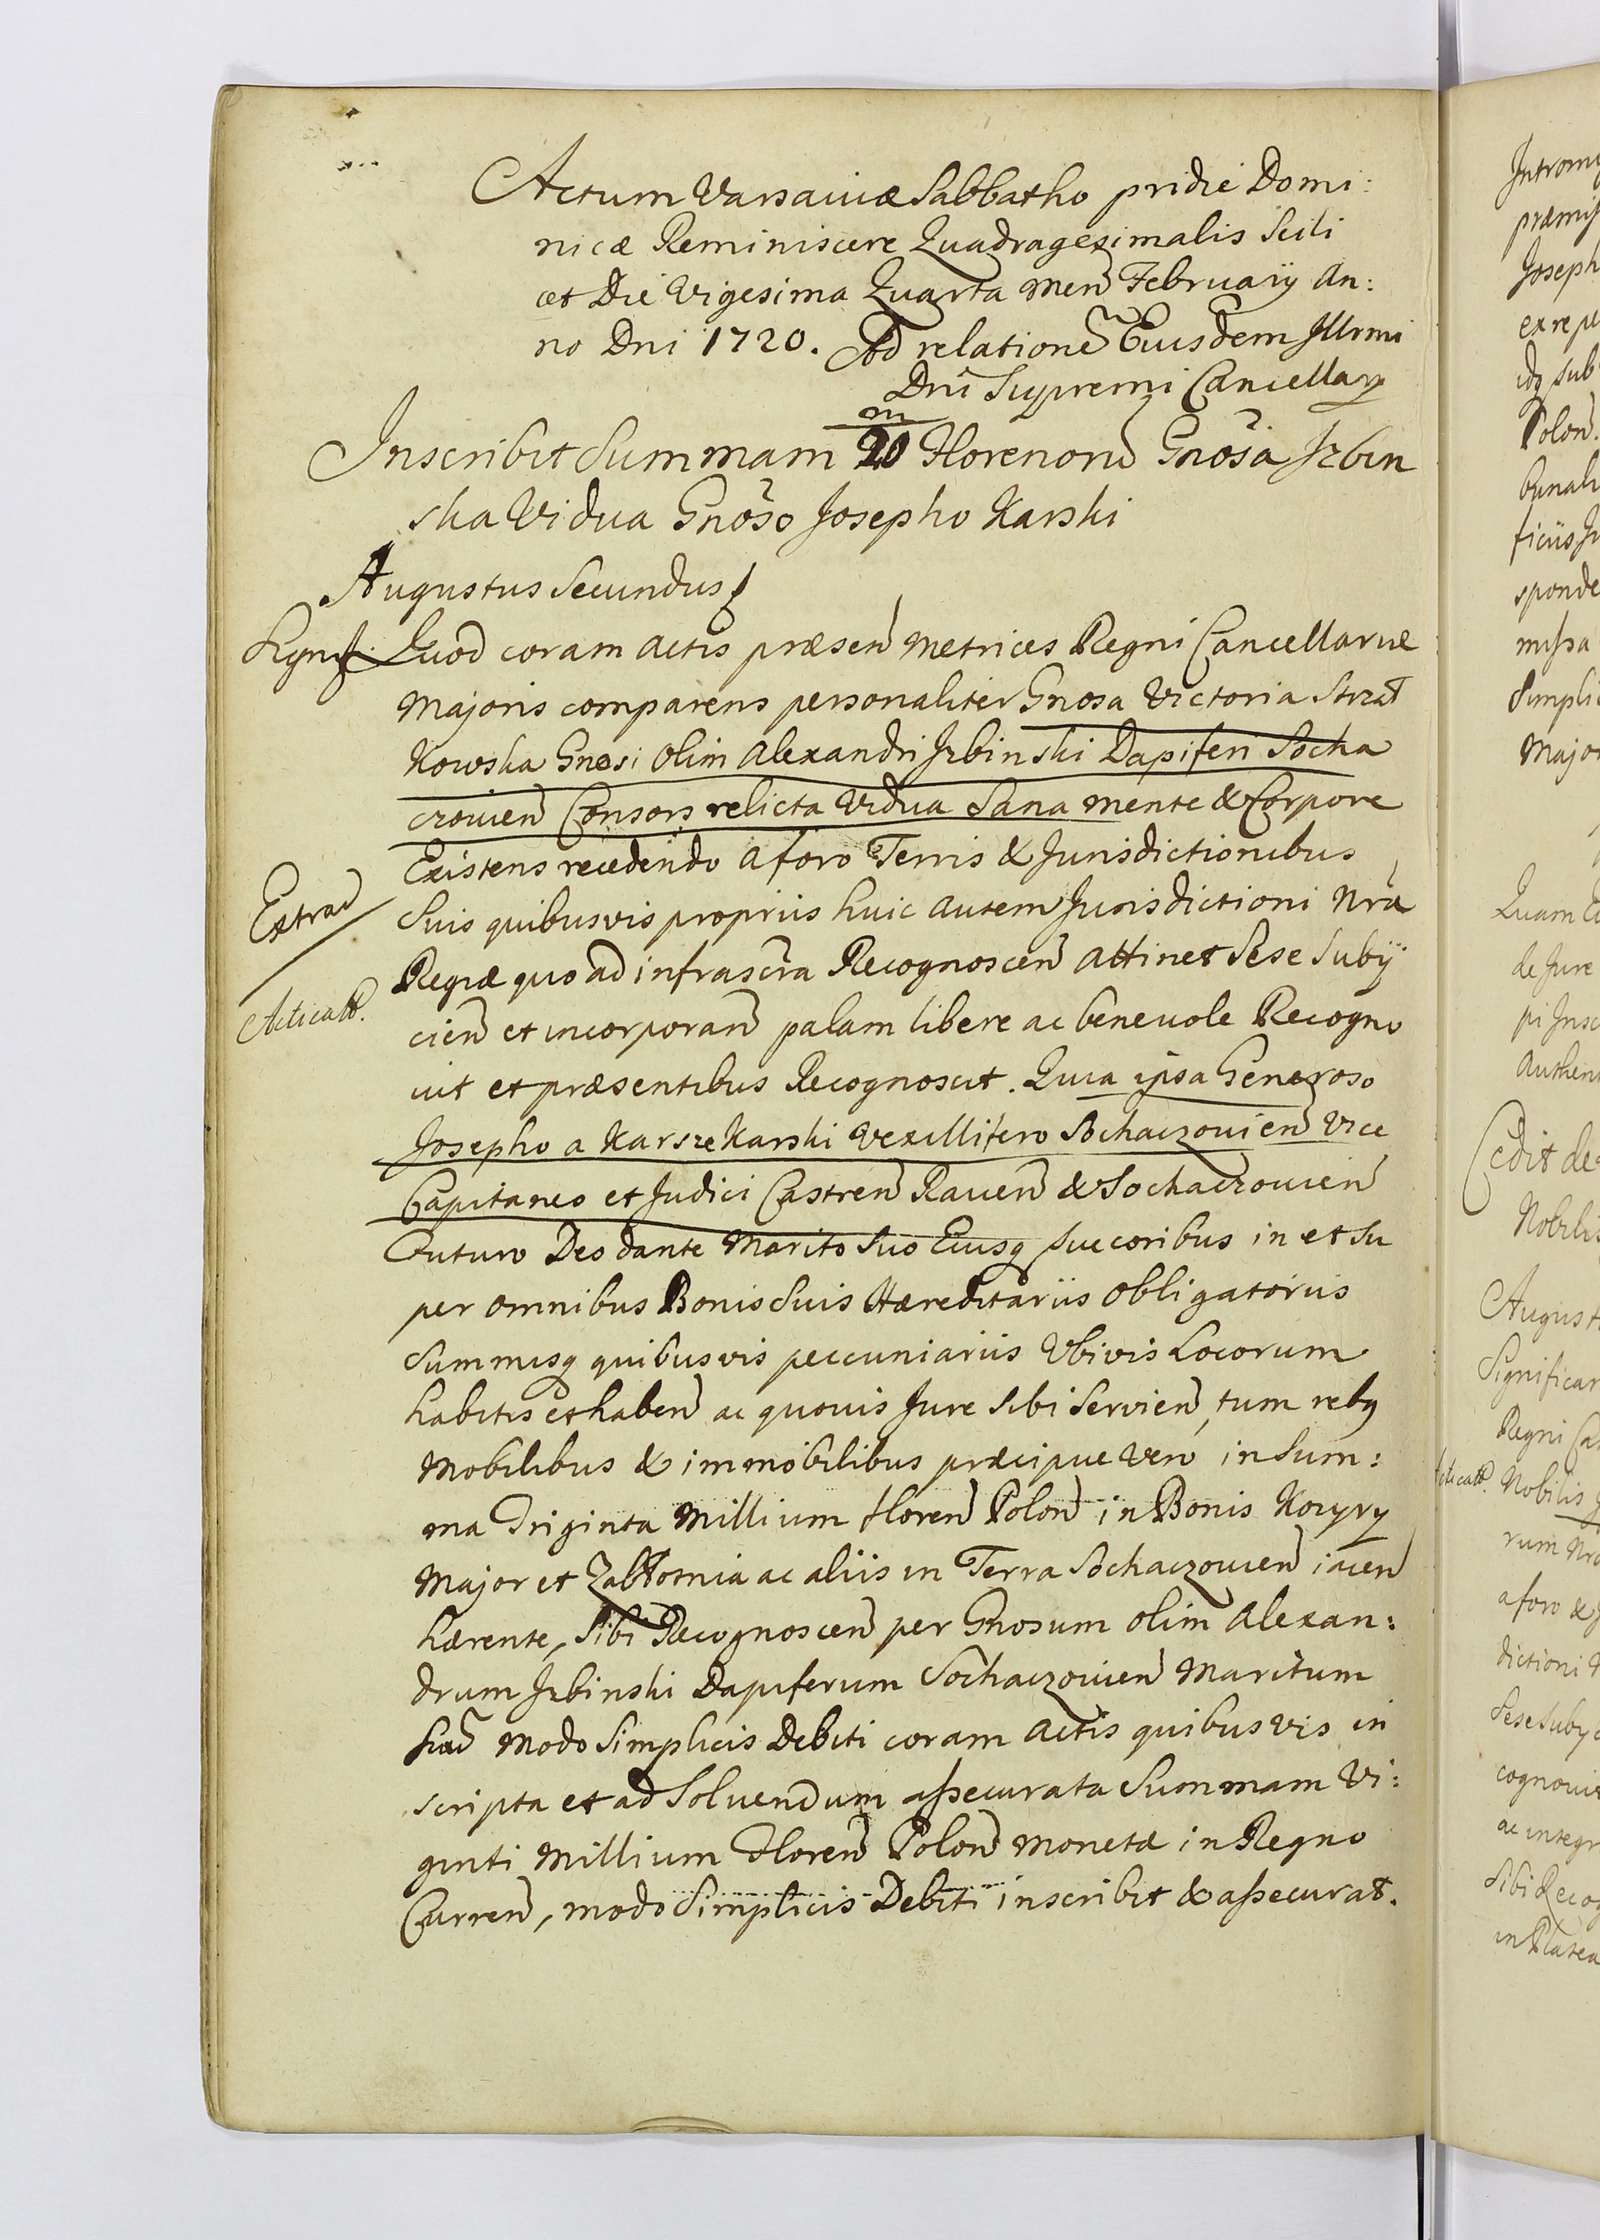 Actum Varsaviæ Sabbatho pridie Domi:
nicæ Reminiscere Quadragesimalis Scili
cet Die Vigesima Quarta Men Februarij An:
no Dni 1720. Ad relatione Eiusdem Illrmi
Dni Supremi Cancellarij
m
Inscribit Summam 20 Florenoru Gnosa Jzbin
ska Vidua Gnoso Josepho Karski
Augustus Secundus
Quod coram Actis præsen Metrices Regni Cancellariæ
Majoris comparens personaliter Gnosa Victoria Strzał
Kowska Gnosi olim Alexandri Jzbinski Dapiferi Socha
czovien Consors relicta Vidua Sana mente & Corpore
Existens recedendo a foro Terris & Jurisdictionibus
Extrad
Suis quibusvis proprijs huic autem Jurisdictioni Nra
Regiæ quo ad infrascra Recognoscen attinet Sese Subij
Acticatt.
cien et incorporan palam libere ac benevole Recogno
vit et præsentibus Recognoscit. Quia ipsa Generoso
Josepho a Karsze Karski Vexillifero Sochaczovien Vice
Capitaneo et Judici Castren Raven & Sochaczovien
Futuro Deo dante Marito Suo Eiusq succoribus in et Su
per omnibus Bonis Suis Hæreditariis Obligatoriis
Summisq quibusvis peccuniariis Ubivis Locorum
habitis et haben ac quovis Jure Sibi Servien, tum rebq
Mobilibus & immobilibus præcipue Vero in Sum:
ma Triginta Millium Floren Polon in Bonis Kozyry
Major et Zabłotnia ac aliis in Terra Sochaczovien iacen
hærente, Sibi Recognoscen per Gnosum olim Alexan:
drum Jzbinski Dapiferum Sochaczovien Maritum
Suu Modo Simplicis Debiti coram Actis quibusvis in
scripta et ad Solvendum assecurata Summam Vi:
ginti Millium Floren Polon Monetæ in Regno
Curren, modo Simplicis Debiti inscribit & assecurat.
Josep
Polon.
sponde
missa
Simpli
Major
Quam
de Jure
Cedit de
Nobilis
August
Significa
Regni Ca
Nobilis
rum Nr
a foro &
dictioni N
Sese Subij
cognovi
ac integr
Sibi Recog
in Platea